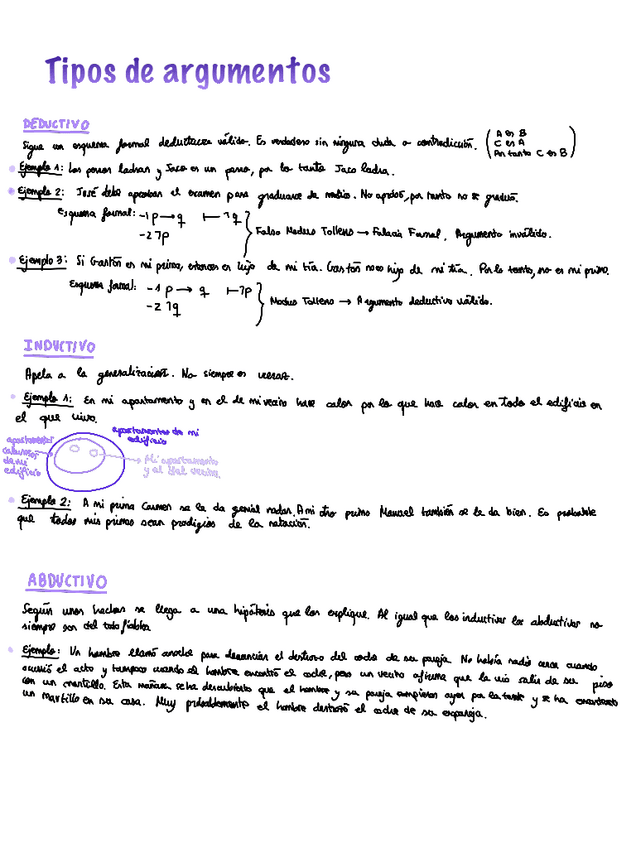 Tipos de argumentos
DEDUCTIVO
Sigue un esquema formal deductivo válido. Es verdadero sin ninguna duda o contradicción. (A es B
C es A
Por tanto C es B)
Ejemplo 1: Los perros ladran y Jaco es un perro, por lo tanto Jaco ladra.
Ejemplo 2: José debe aprobar el examen para graduarse de medico. No aprobó, por tanto no se graduó.
Esquema formal: -1 p → q ⊢ ¬q
-2 ¬p
Falso Modus Tollens → Falacia Formal, Argumento inválido.
Ejemplo 3: Si Gastón es mi primo, entonces es hijo de mi tía. Gastón no es hijo de mi tía. Por lo tanto, no es mi primo.
Esquema formal: -1 p → q ⊢ ¬p
-2 ¬q
Modus Tollens → Argumento deductivo válido.
INDUCTIVO
Apela a la generalización. No siempre es veraz.
Ejemplo 1: En mi apartamento y en el de mi vecino hace calor por lo que hace calor en todo el edificio en
el que vivo.
apartamentos de mi
edificio
apartamentos
calurosos
de mi
edificio
Mi apartamento
y el del vecino.
Ejemplo 2: A mi prima Carmen se le da genial nadar. A mi otro primo Manuel también se le da bien. Es probable
que todos mis primos sean prodigios de la natación.
ABDUCTIVO
Según unos hechos se llega a una hipótesis que los explique. Al igual que los inductivos los abductivos no
siempre son del todo fiables
Ejemplo: Un hombre llamó anoche para denunciar el destrozo del coche de su pareja. No había nadie cerca cuando
ocurrió el acto y tampoco cuando el hombre encontró el coche, pero un vecino afirma que le vio salir de su piso
con un martillo. Esta mañana se ha descubierto que el hombre y su pareja rompieron ayer por la tarde y se ha encontrado
un martillo en su casa. Muy probablemente el hombre destrozó el coche de su expareja.